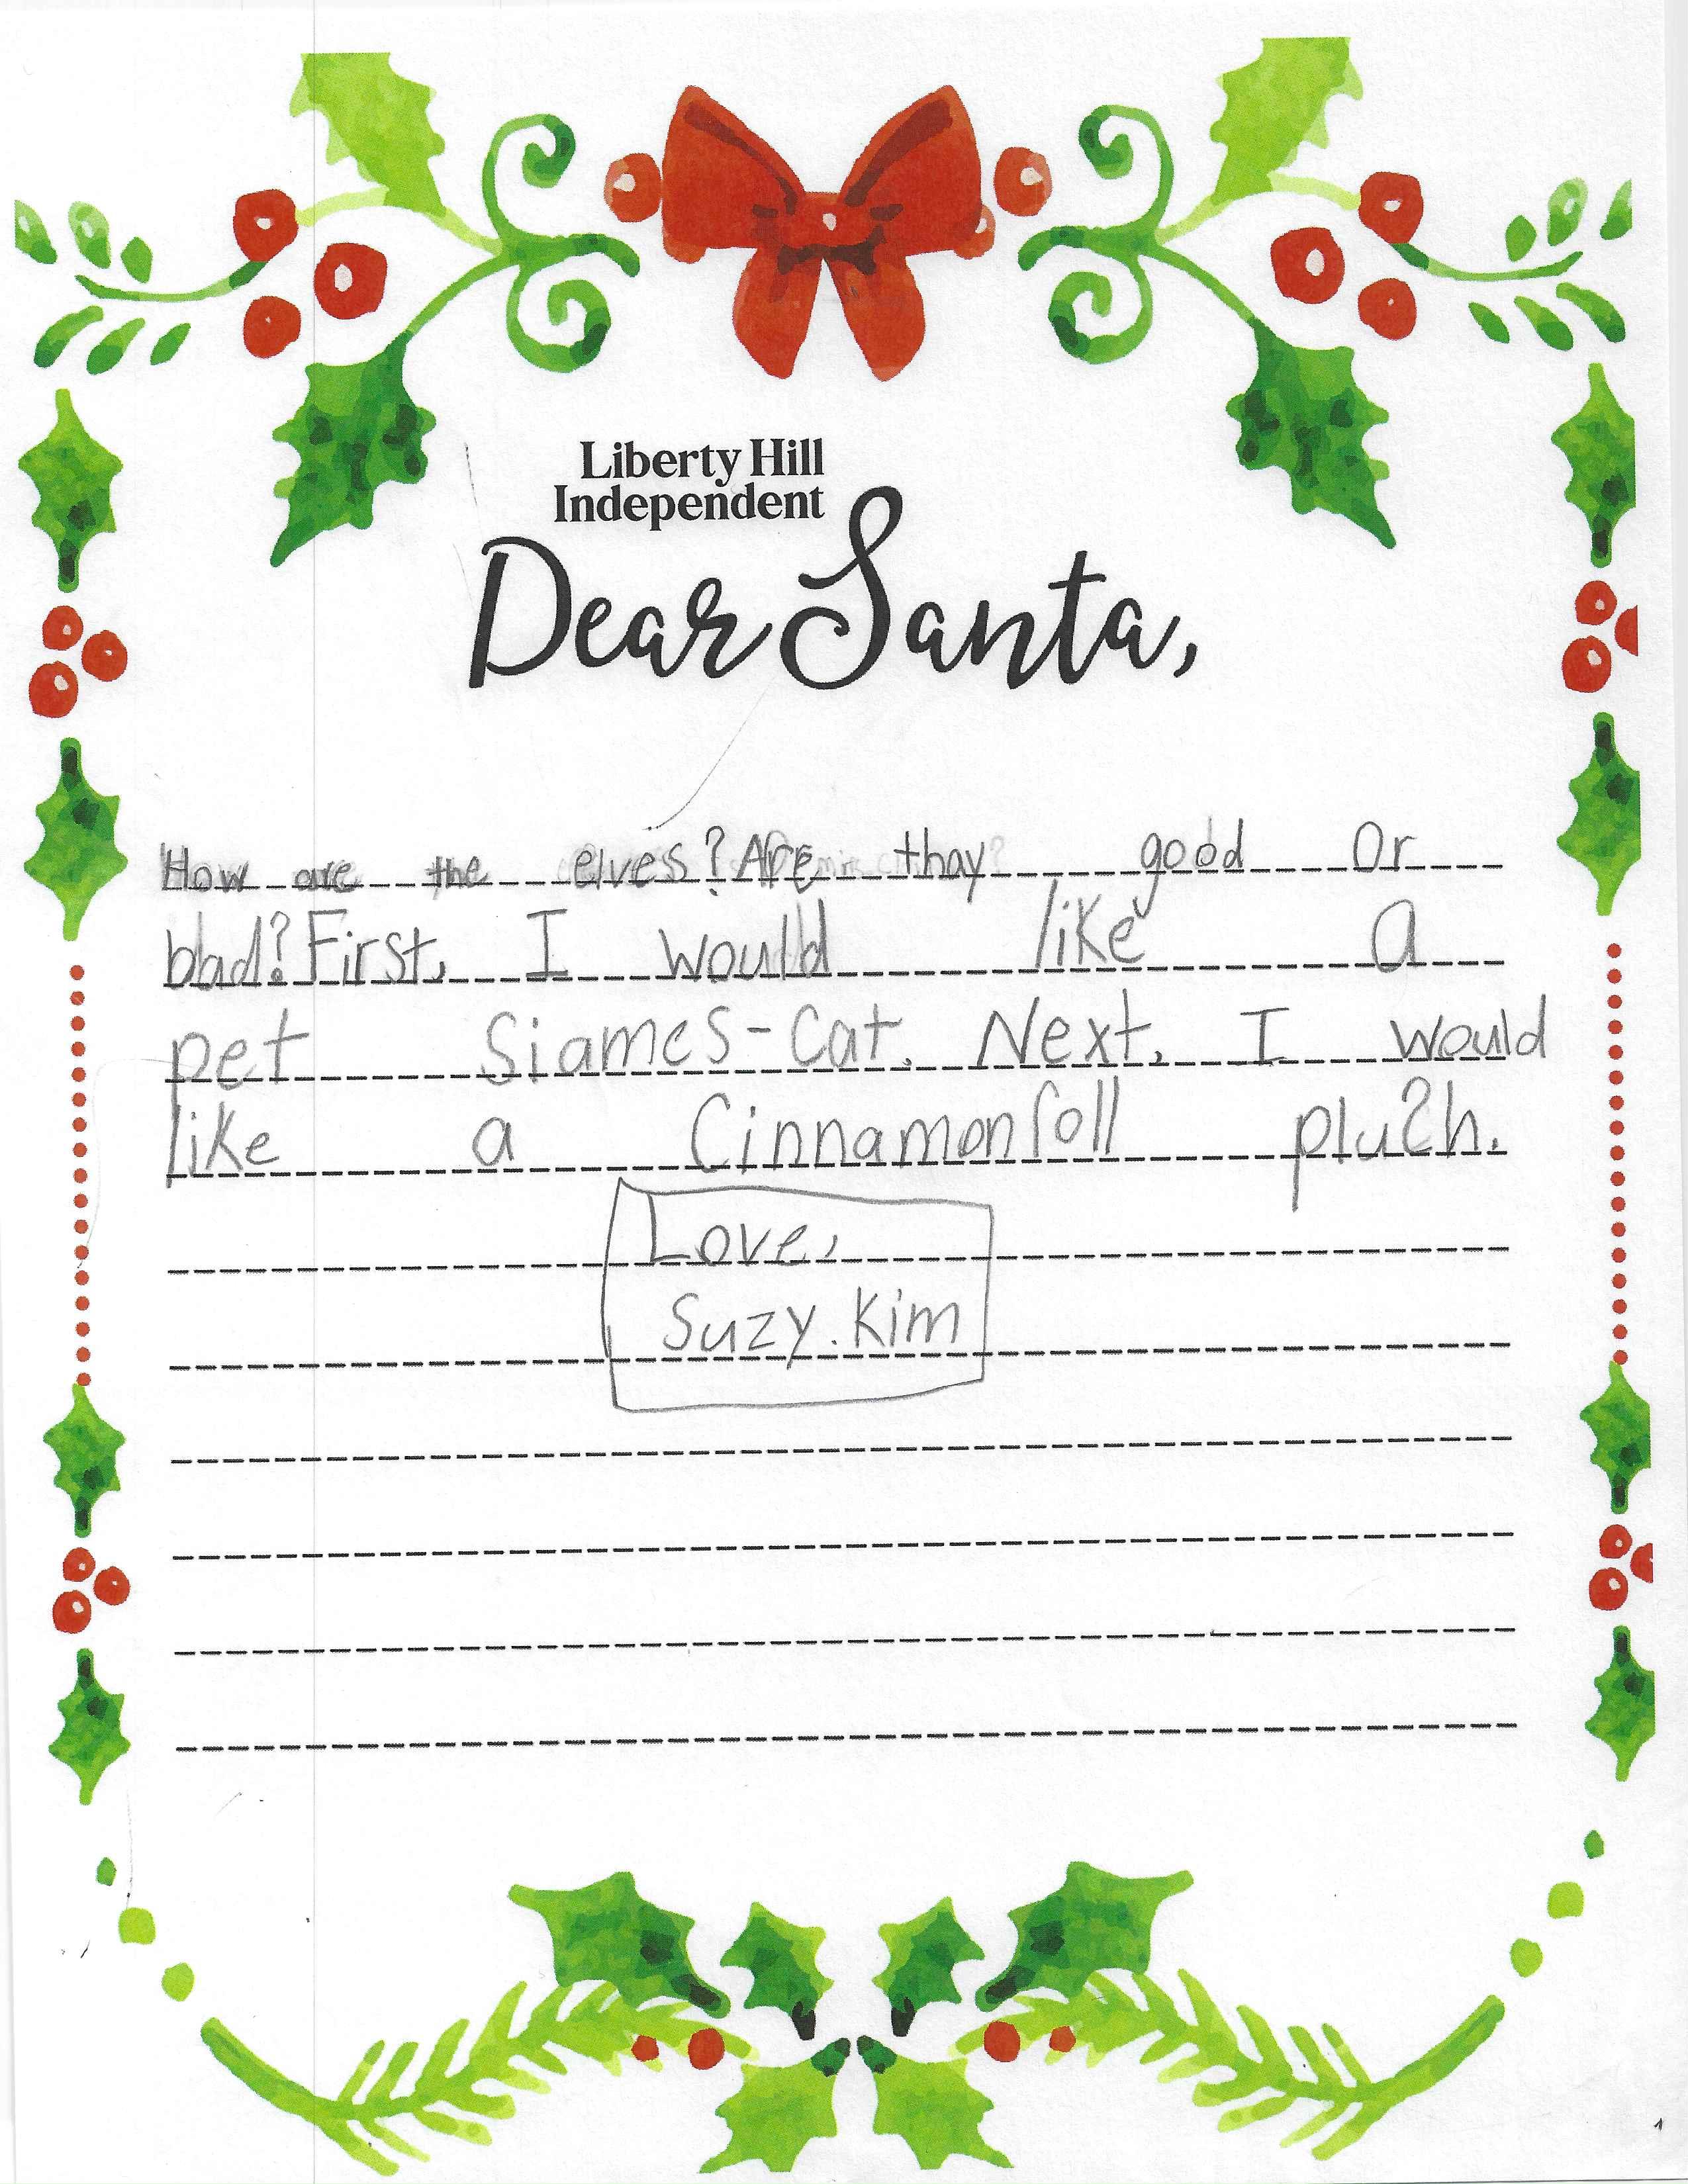 Liberty Hill
Independent
Dear Santa,
How are the elves? Are thay good Or
bad? First, I would like a
pet Siames-Cat. Next, I would
like a Cinnamonroll plush.
Love,
Suzy.Kim